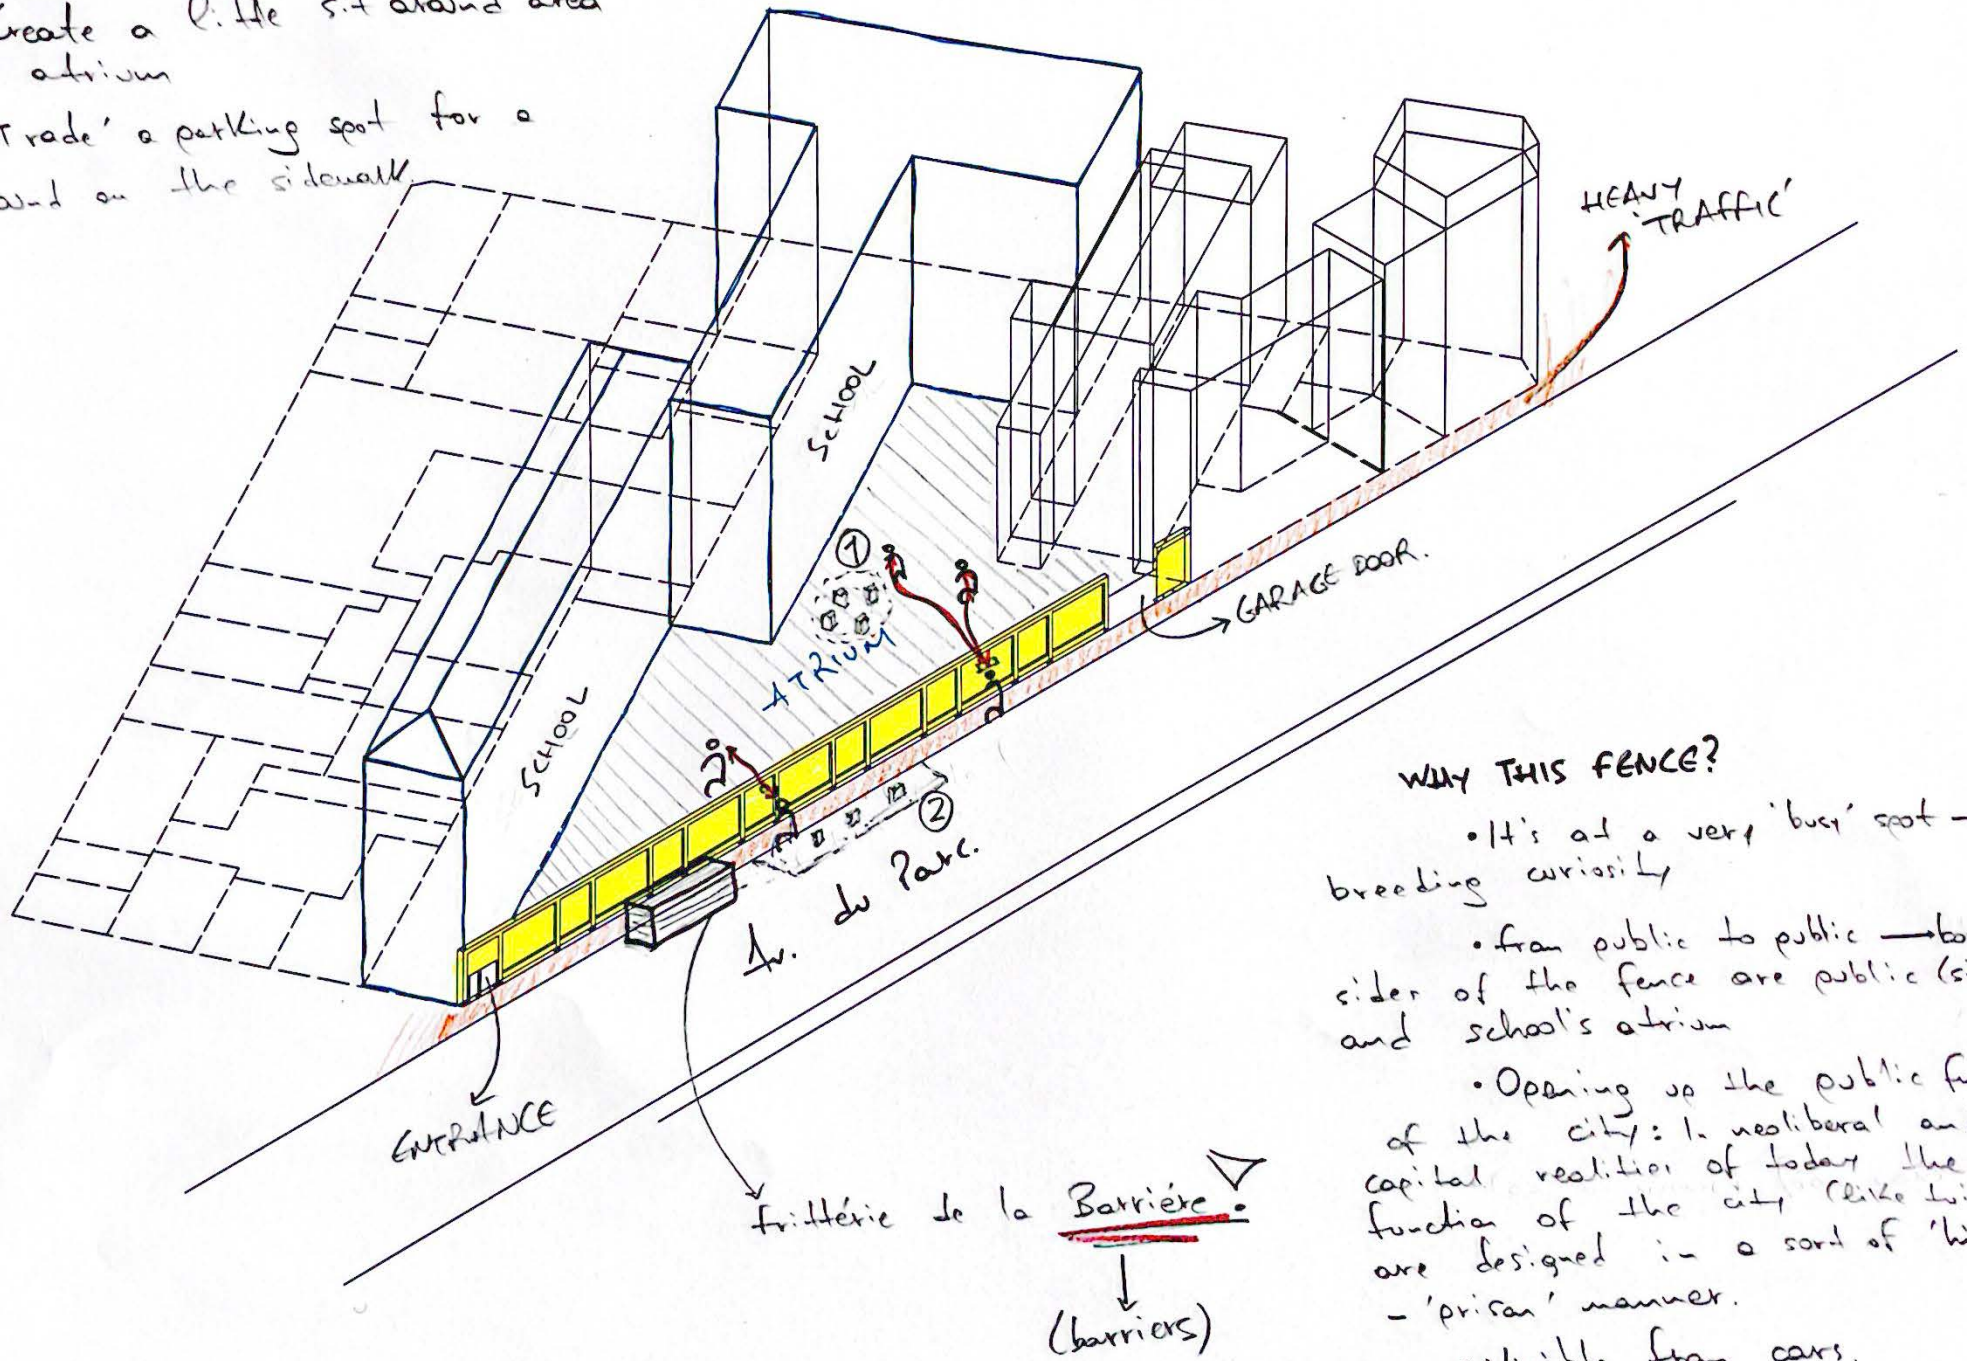 reate a little sit around area
atrium
Trade' a parking spot for a
ound on the sidewalk.
HEAVY
'TRAFFIC'
SCHOOL
①
ATRIUM
GARAGE DOOR.
SCHOOL
②
Av. du Parc.
ENTRANCE
frittérie de la Barriére!
(barriers)
WHY THIS FENCE?
• It's at a very 'busy' spot –
breeding curiosity
• from public to public → bo
sides of the fence are public (si
and school's atrium
• Opening up the public fu
of the city: In neoliberal an
capital realities of today the
function of the city (like
are designed in a sort of
- 'prison' manner.
from cars.